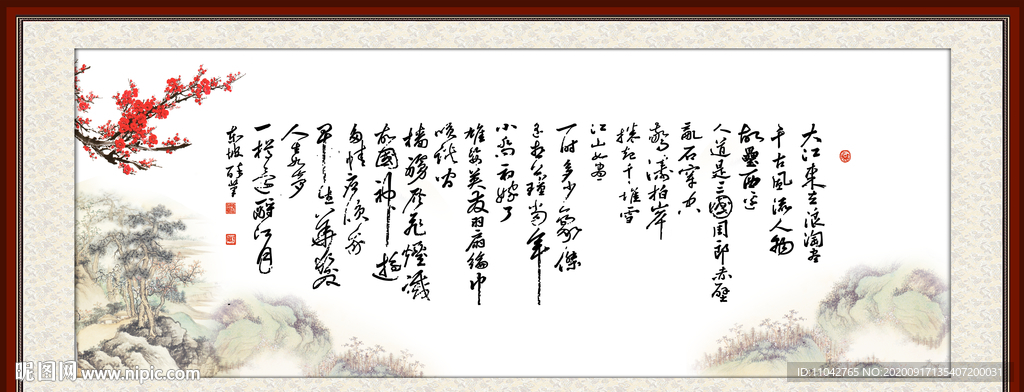 大江東去浪淘尽
千古風流人物
故壘西邊
人道是三國周郎赤壁
亂石穿空
驚濤拍岸
捲起千堆雪
江山如畫
一时多少豪傑
遙想公瑾當年
小喬初嫁了
雄姿英发羽扇綸巾
談笑间
檣櫓灰飛煙滅
故國神遊
多情应笑我
早生華髮
人生如夢
一樽還酹江月
東坡
昵图网 www.nipic.com
ID:11042765 NO:20200917135407200031